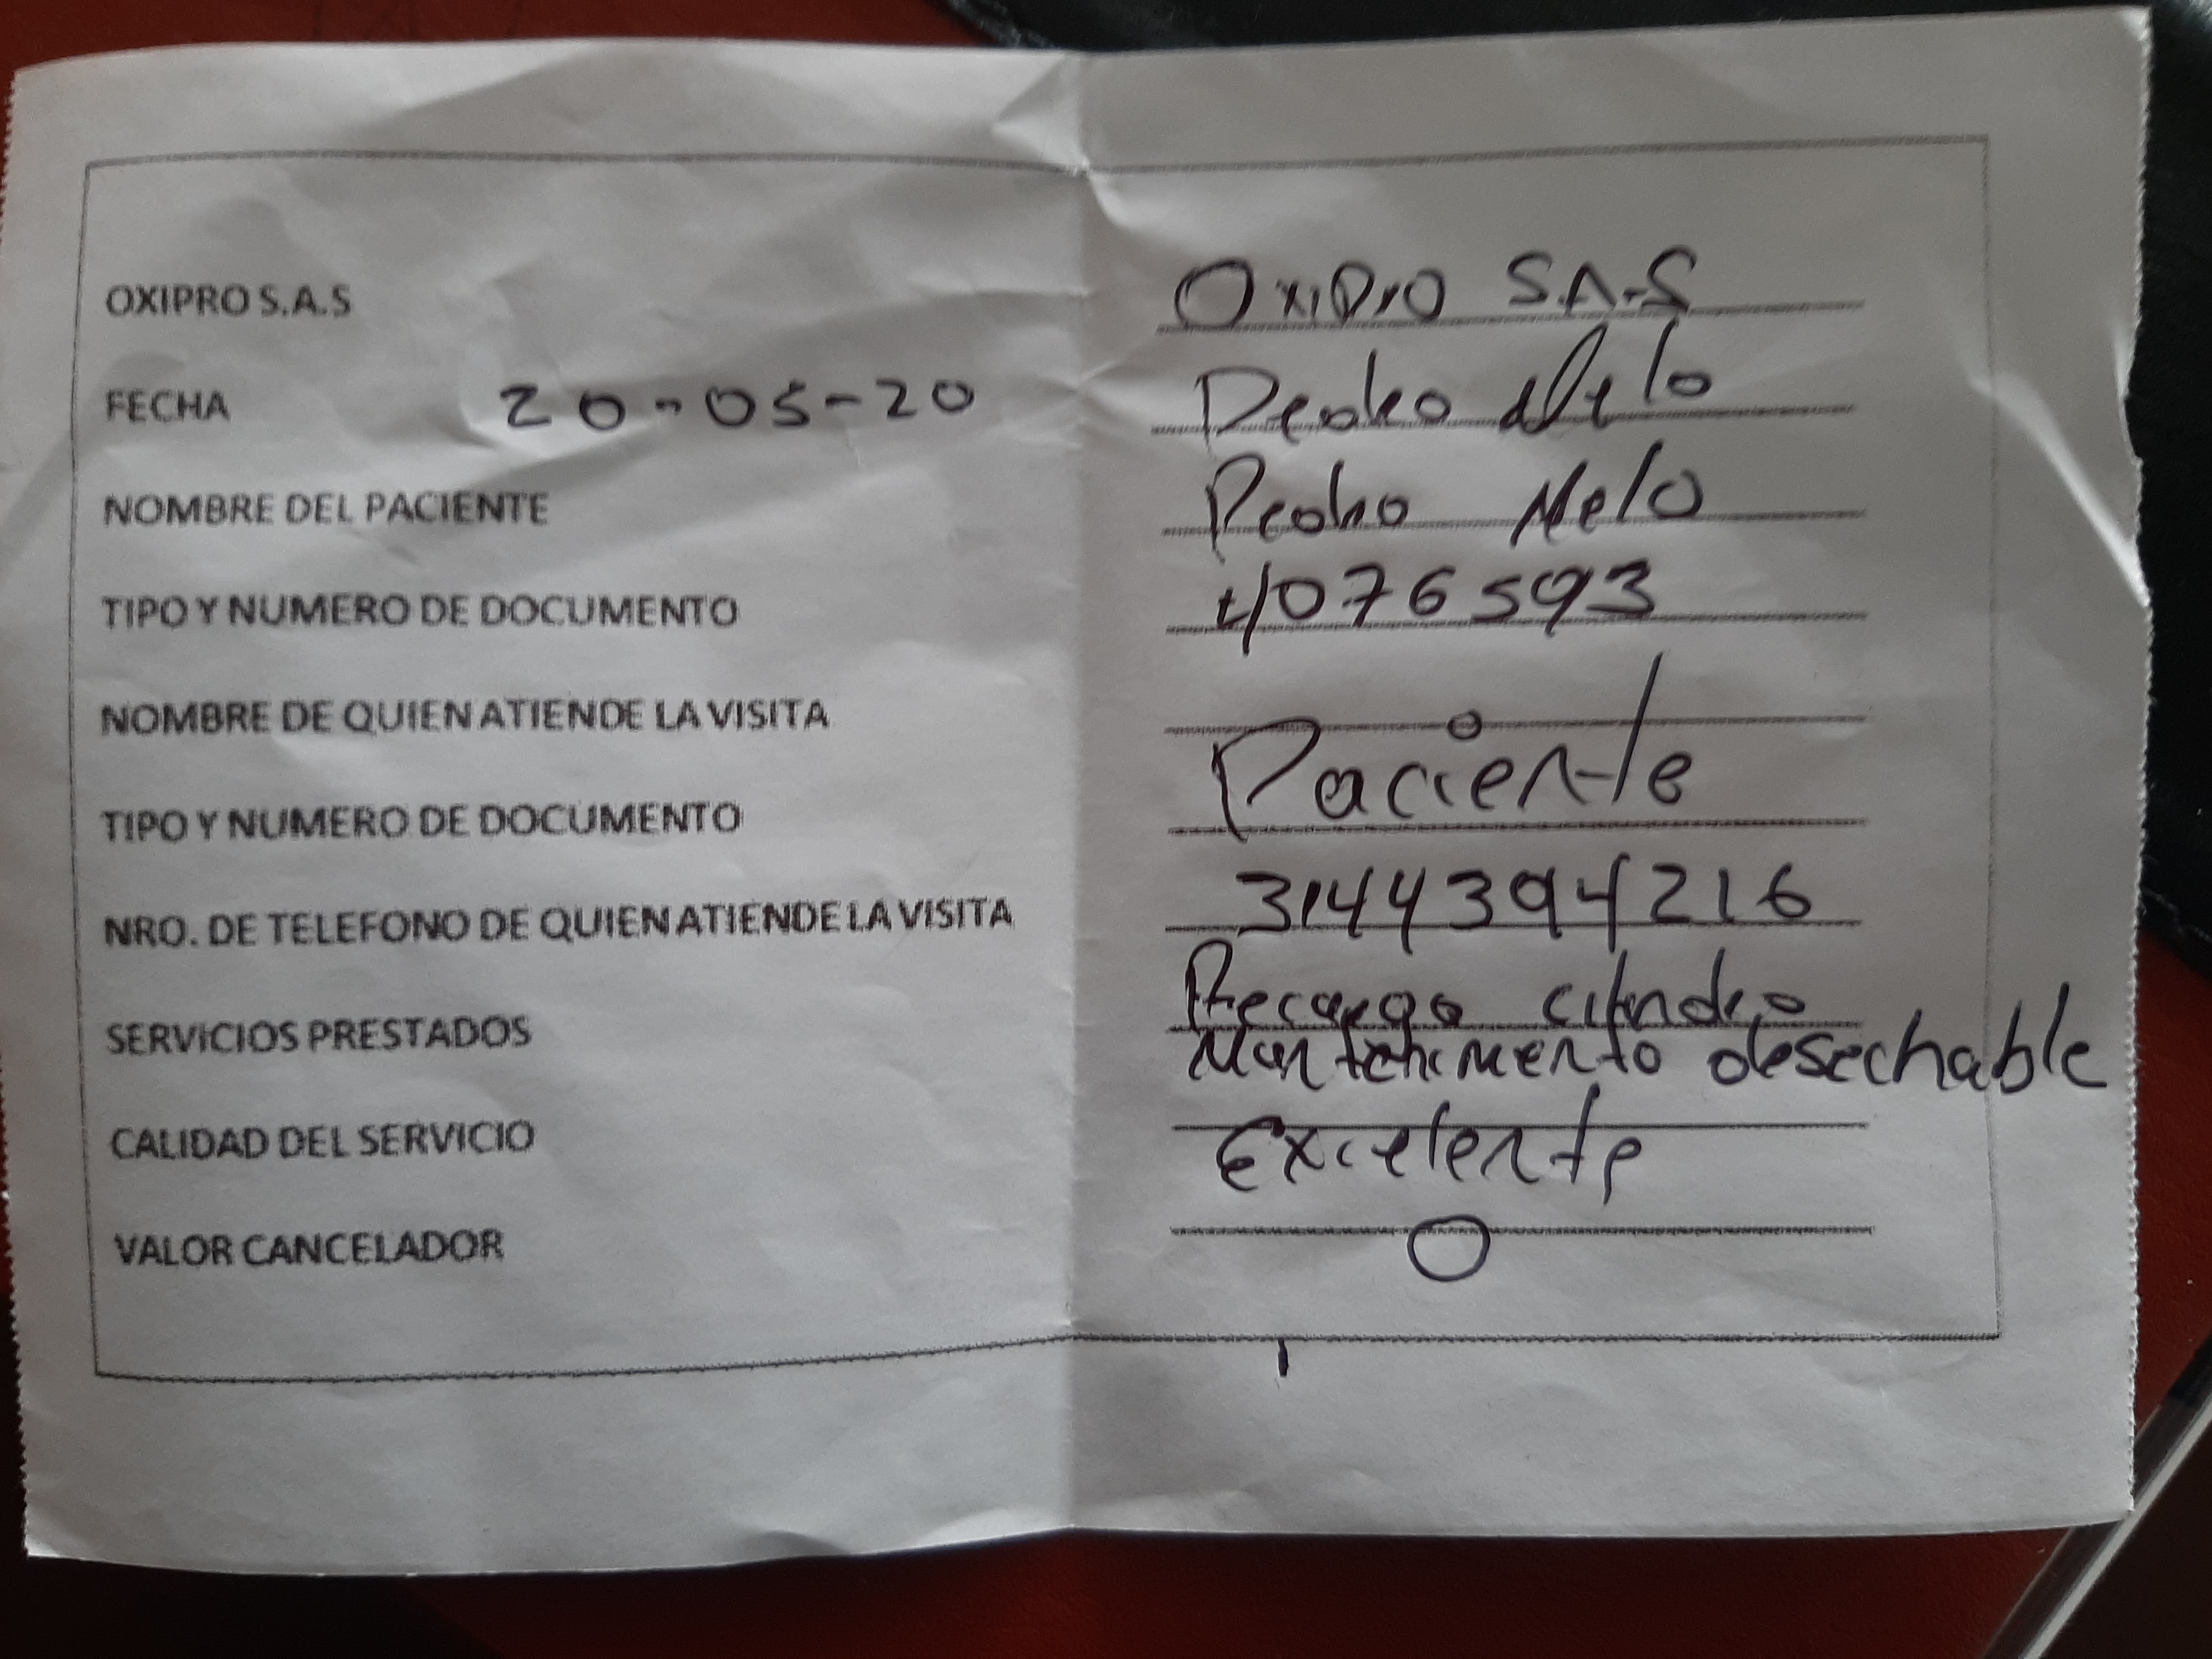 OXIPRO S.A.S OxiPro S.A.S
FECHA 20-05-20 Pedro Melo
NOMBRE DEL PACIENTE Pedro Melo
TIPO Y NUMERO DE DOCUMENTO 4076593
NOMBRE DE QUIEN ATIENDE LA VISITA
TIPO Y NUMERO DE DOCUMENTO Paciente
NRO. DE TELEFONO DE QUIEN ATIENDE LA VISITA 3144394216
SERVICIOS PRESTADOS Recarga cilindro
Mantenimento desechable
CALIDAD DEL SERVICIO Excelente
VALOR CANCELADOR 0